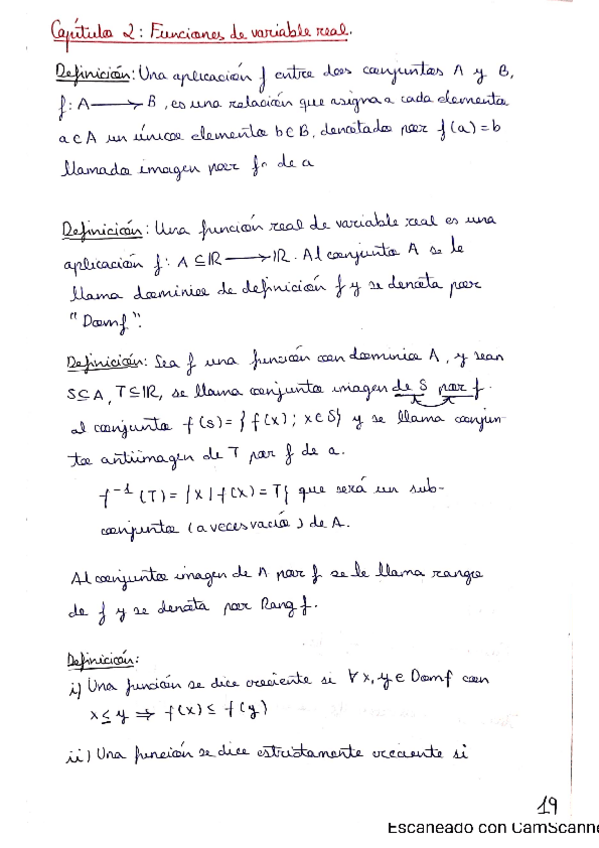 Capítulo 2: Funciones de variable real.
Definición: Una aplicación f entre dos conjuntos A y B,
f: A ⟶ B, es una relación que asigna a cada elemento
a ∈ A un único elemento b ∈ B, denotado por f(a) = b
llamado imagen por f de a
Definición: Una función real de variable real es una
aplicación f: A ⊆ ℝ ⟶ ℝ. Al conjunto A se le
llama dominio de definición f y se denota por
"Dom f".
Definición: Sea f una función con dominio A, y sean
S ⊆ A, T ⊆ ℝ, se llama conjunto imagen de S por f.
al conjunto f(s) = {f(x); x ∈ S} y se llama conjun-
to antiimagen de T por f de a.
f⁻¹(T) = {x / f(x) = T} que será un sub-
conjunto (a veces vacío) de A.
Al conjunto imagen de A por f se le llama rango
de f y se denota por Rang f.
Definición:
i) Una función se dice creciente si ∀ x, y ∈ Dom f con
x ≤ y ⇒ f(x) ≤ f(y)
ii) Una función se dice estrictamente creciente si
19
Escaneado con CamScanne